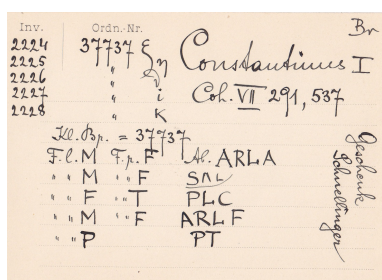 Inv. Ordn. Nr. Br
2224 37737 ξ Constantinus I
2225 " η
2226 " ϑ Coh. VII 291, 537
2227 " i
2228 " K
Kl. Br. = 37737
F. l. M F. r. F Ab. ARLA
" " M " F SAL
" " F " T PLC
" " M " F ARLF
" " P PT
Geschenk
Schnellinger